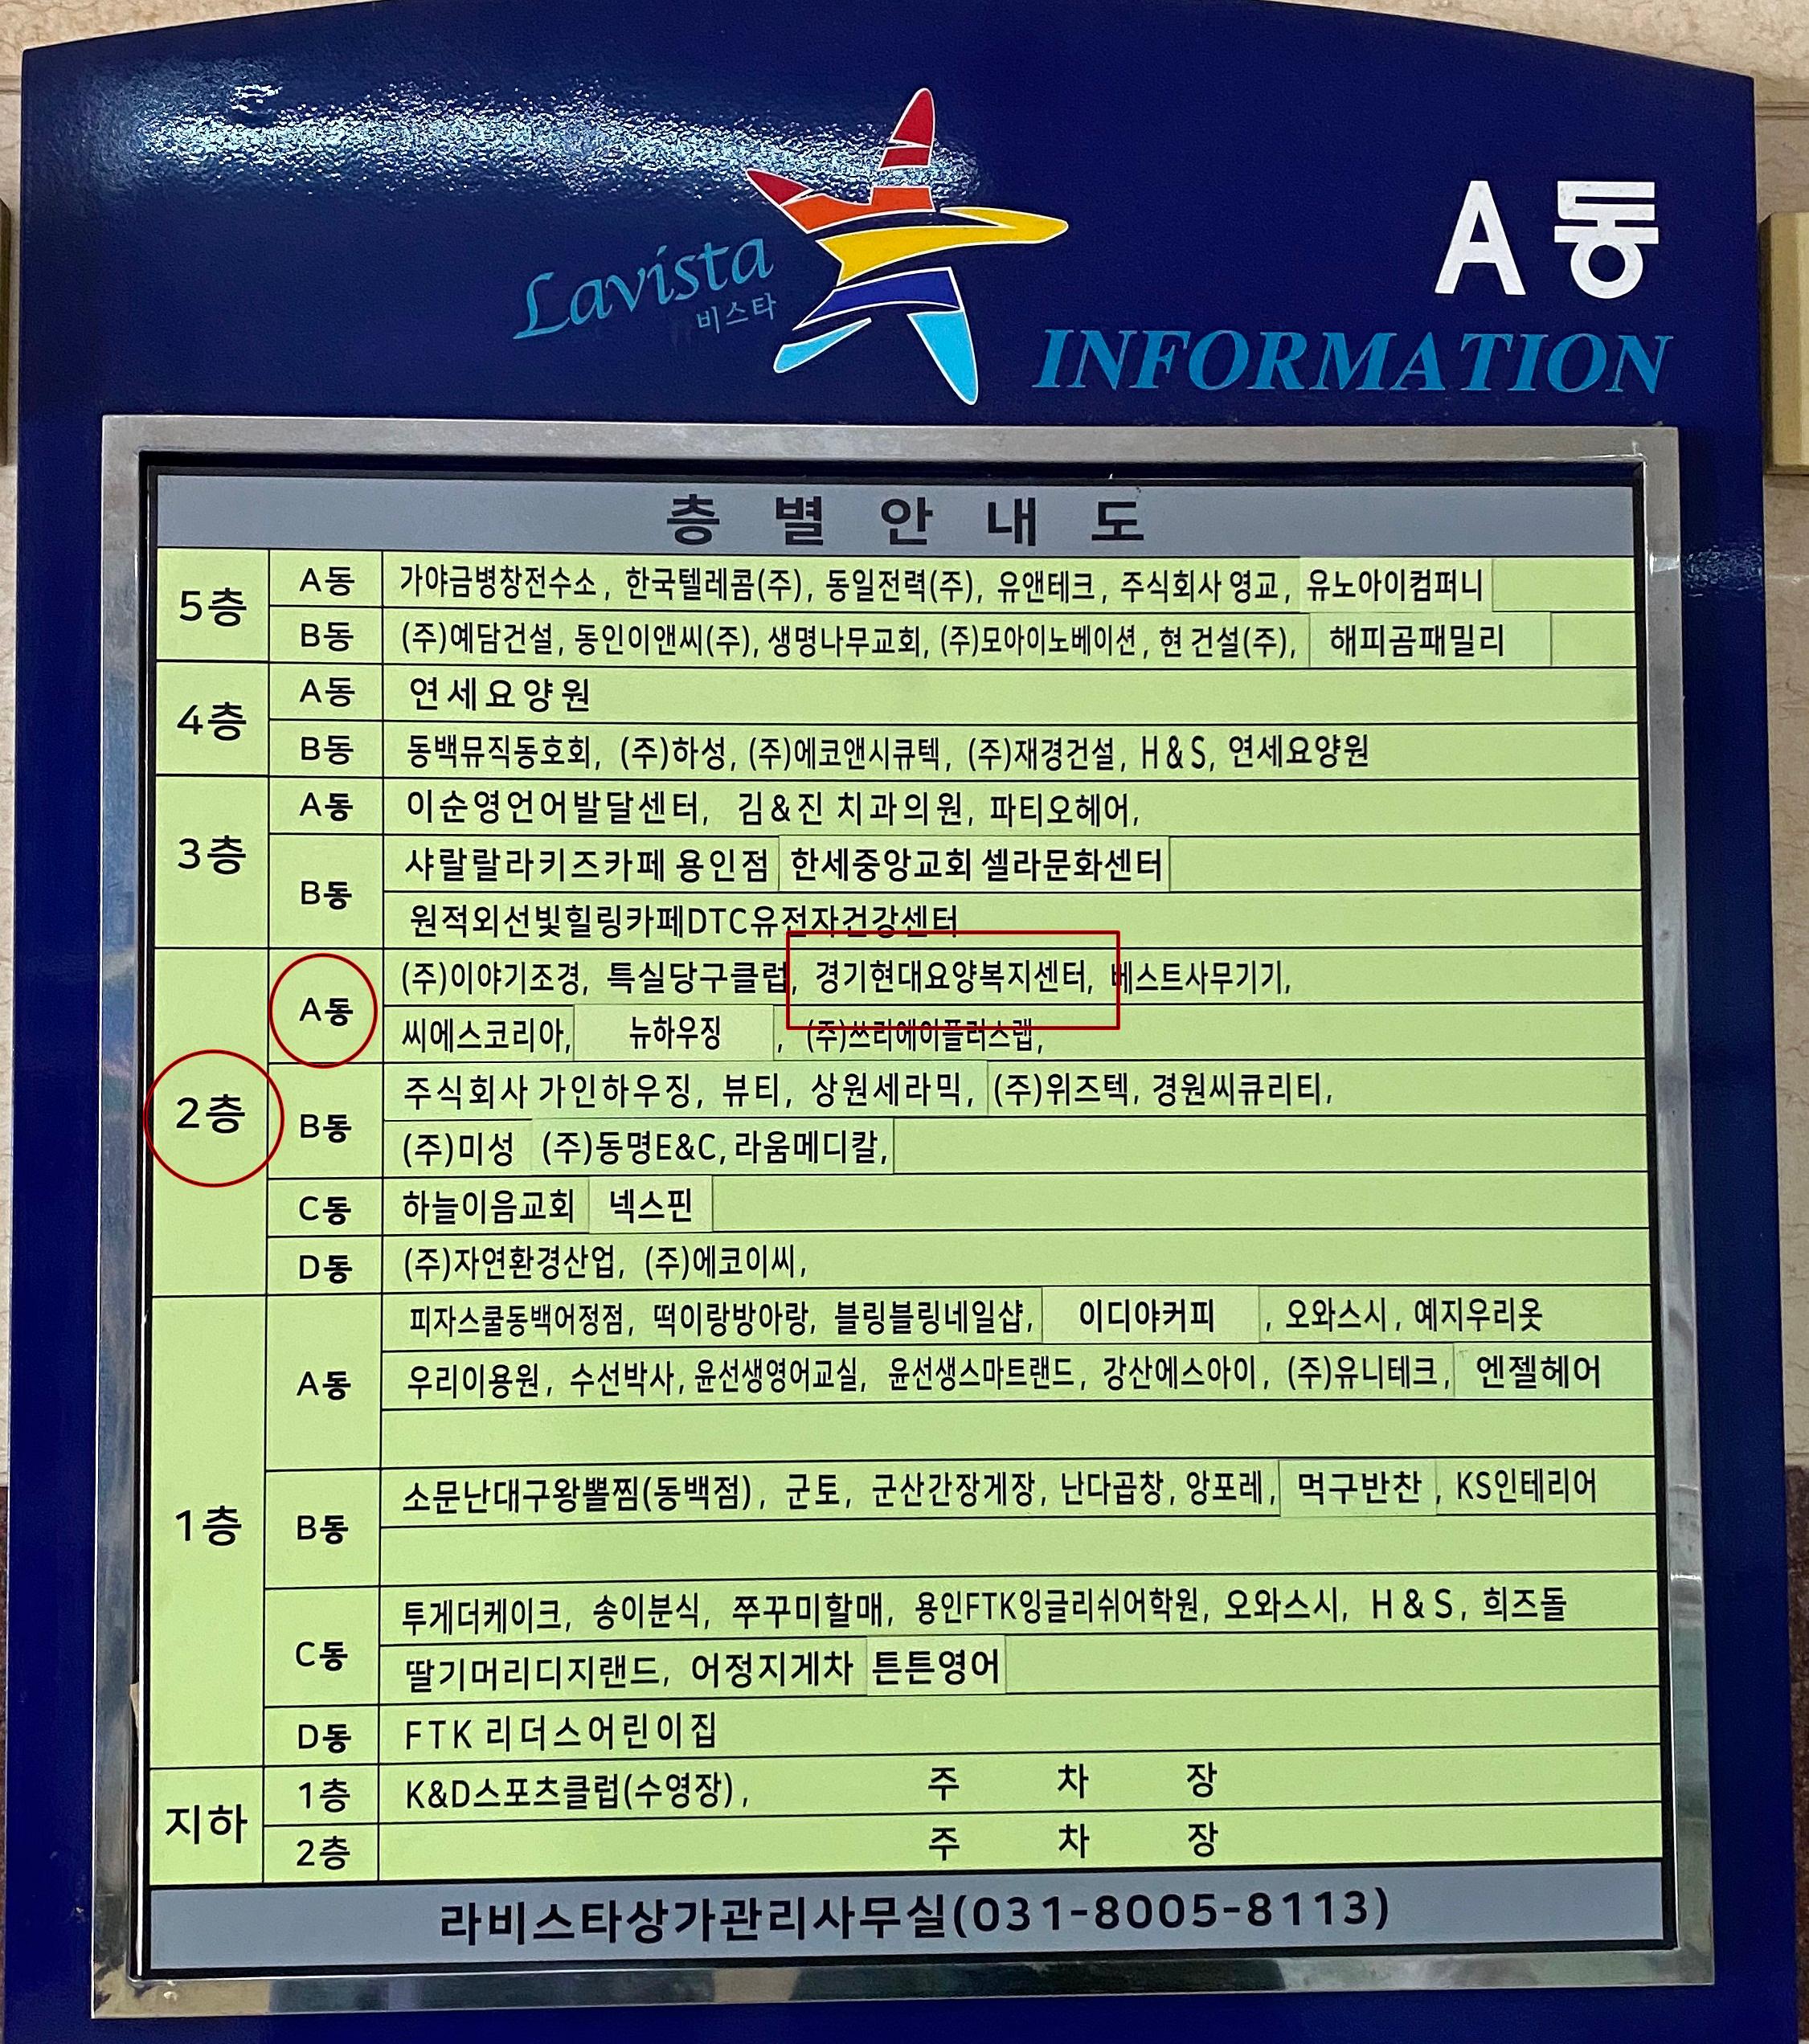 Lavista
비스타
A동
INFORMATION
층 별 안 내 도
5층
A동
가야금병창전수소, 한국텔레콤(주), 동일전력(주), 유앤테크, 주식회사 영교, 유노아이컴퍼니
B동
(주)예담건설, 동인이앤씨(주), 생명나무교회, (주)모아이노베이션, 현 건설(주), 해피곰패밀리
4층
A동
연세요양원
B동
동백뮤직동호회, (주)하성, (주)에코앤시큐텍, (주)재경건설, H&S, 연세요양원
3층
A동
이순영언어발달센터, 김&진 치과의원, 파티오헤어,
B동
샤랄랄라키즈카페 용인점 한세중앙교회 셀라문화센터
원적외선빛힐링카페DTC유전자건강센터
2층
A동
(주)이야기조경, 특실당구클럽, 경기현대요양복지센터, 베스트사무기기,
씨에스코리아, 뉴하우징 , (주)쓰리에이플러스랩,
B동
주식회사 가인하우징, 뷰티, 상원세라믹, (주)위즈텍, 경원씨큐리티,
(주)미성 (주)동명E&C, 라움메디칼,
C동
하늘이음교회 넥스핀
D동
(주)자연환경산업, (주)에코이씨,
1층
A동
피자스쿨동백어정점, 떡이랑방아랑, 블링블링네일샵, 이디야커피 , 오와스시, 예지우리옷
우리이용원, 수선박사, 윤선생영어교실, 윤선생스마트랜드, 강산에스아이, (주)유니테크, 엔젤헤어
B동
소문난대구왕뽈찜(동백점), 군토, 군산간장게장, 난다곱창, 앙포레, 먹구반찬 , KS인테리어
C동
투게더케이크, 송이분식, 쭈꾸미할매, 용인FTK잉글리쉬어학원, 오와스시, H&S, 희즈돌
딸기머리디지랜드, 어정지게차 튼튼영어
D동
FTK 리더스어린이집
지하
1층
K&D스포츠클럽(수영장), 주 차 장
2층
주 차 장
라비스타상가관리사무실(031-8005-8113)